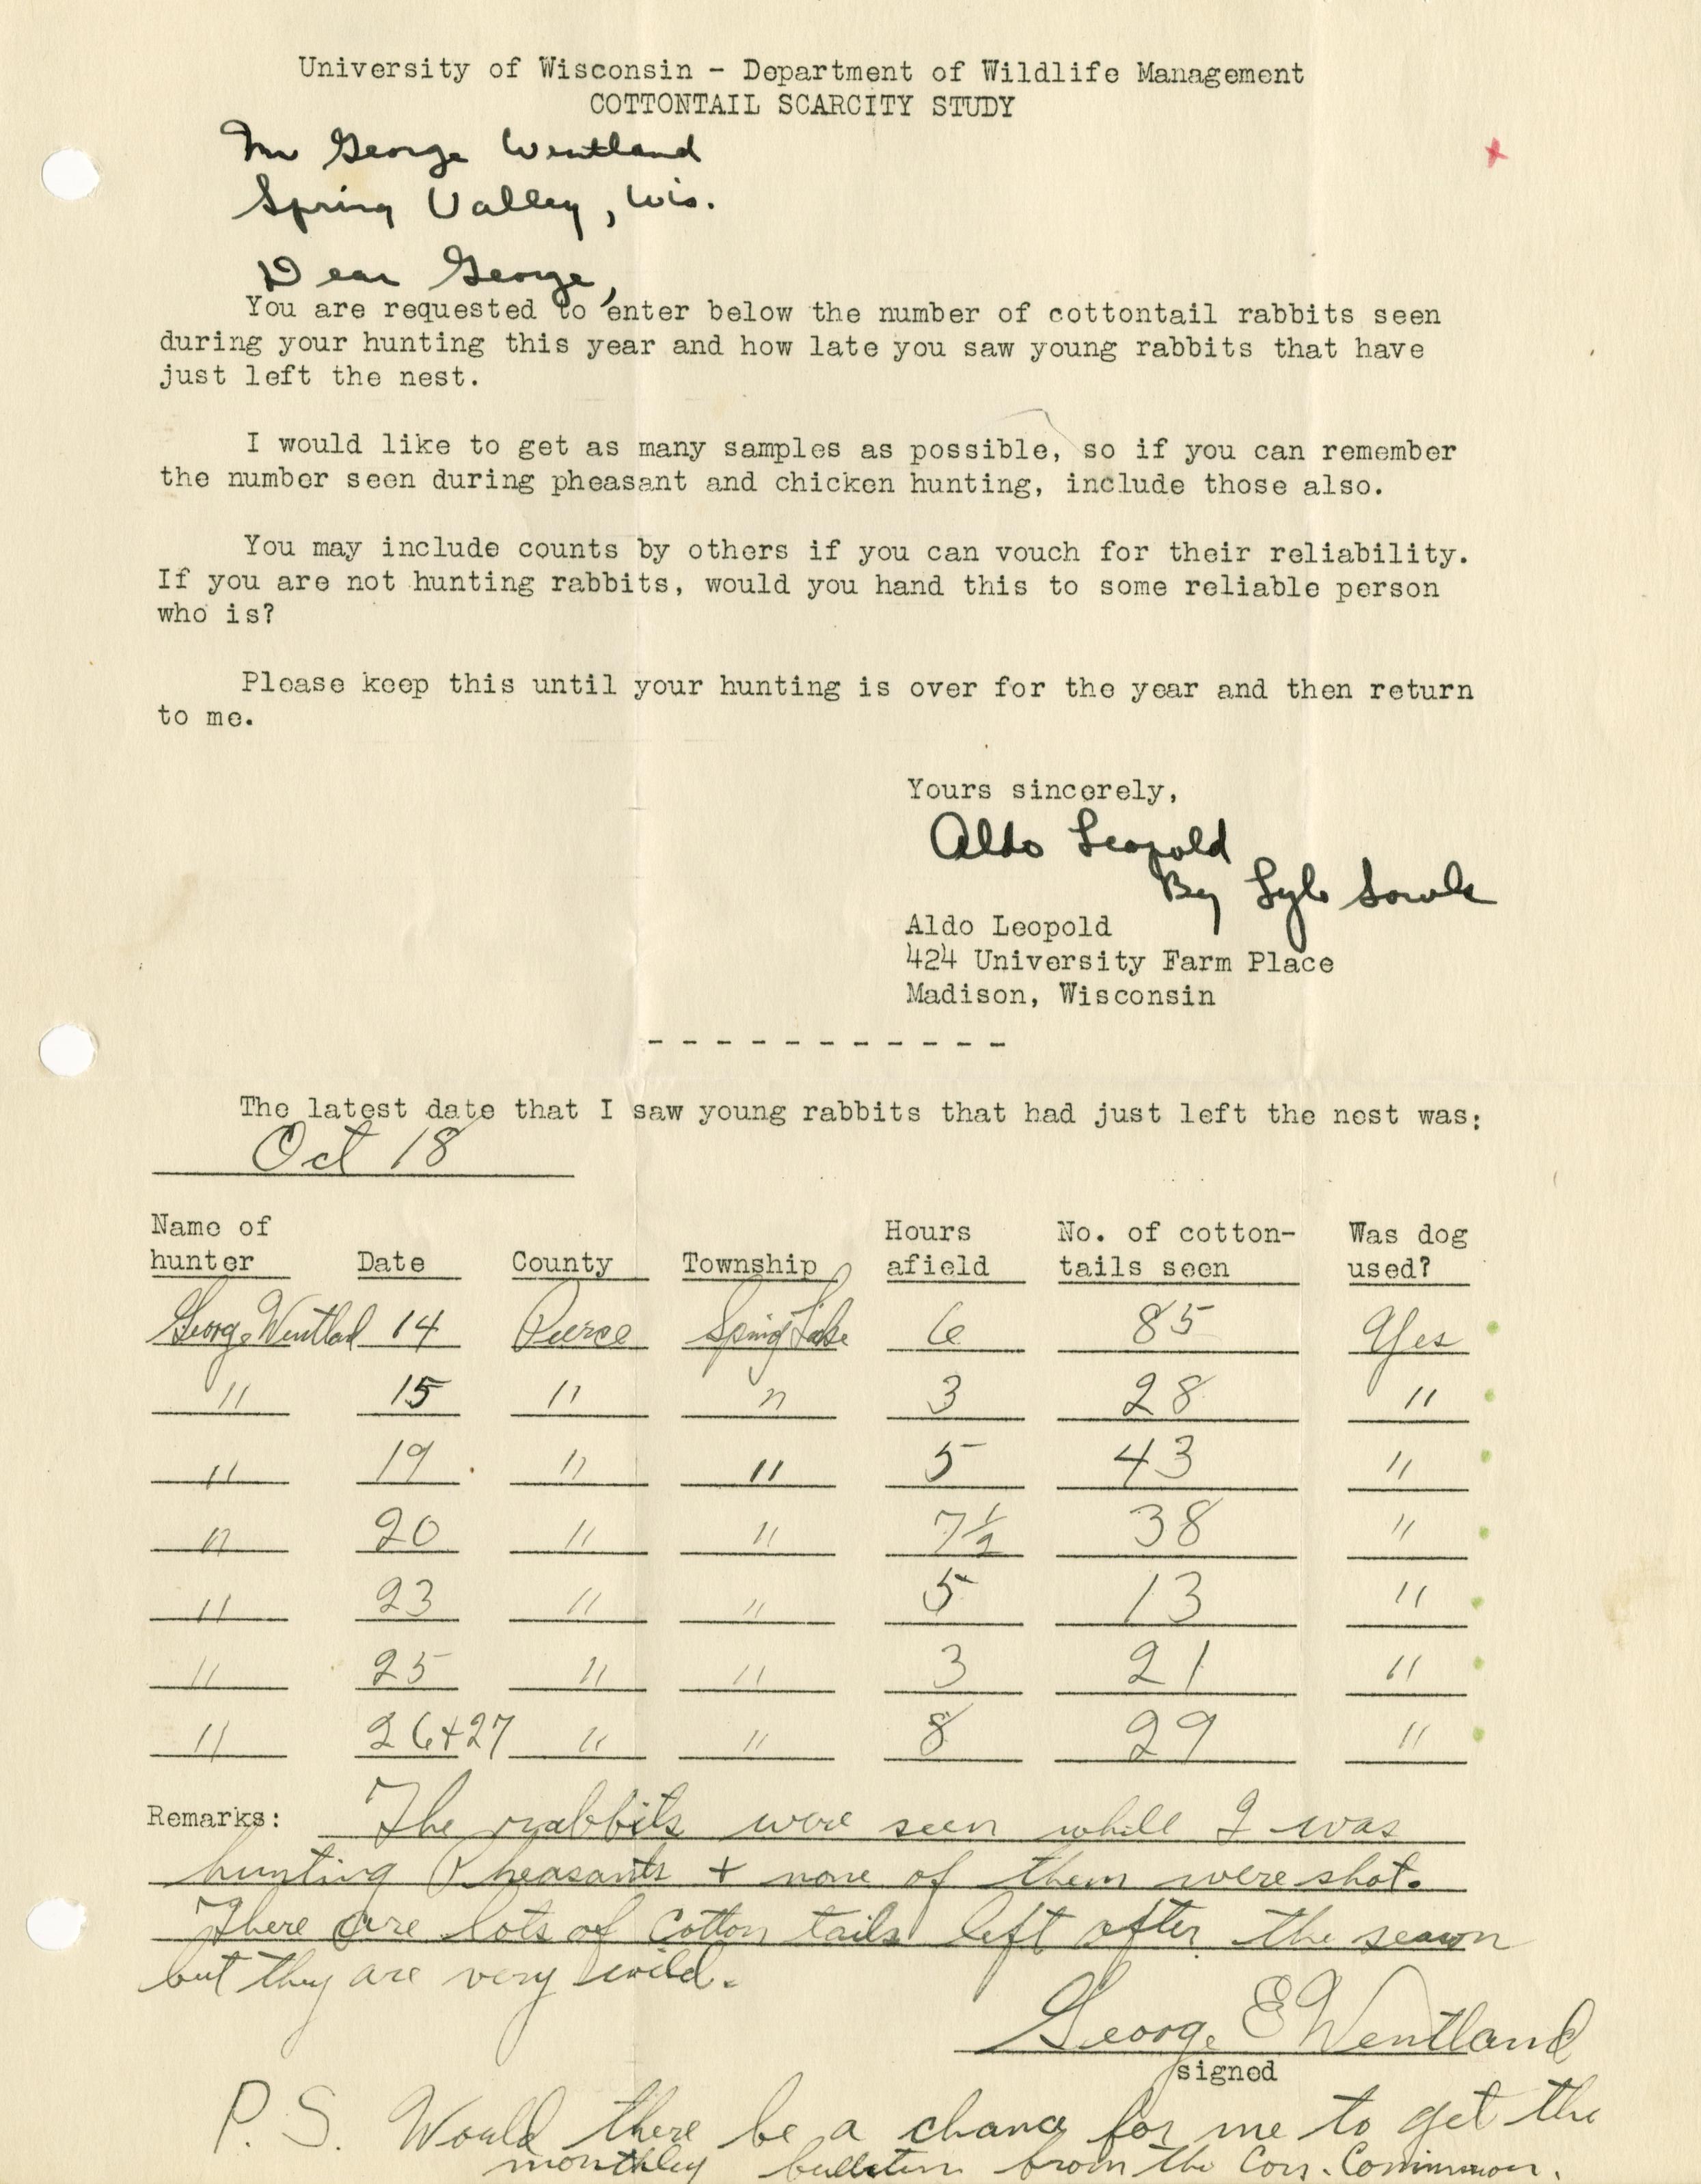 University of Wisconsin - Department of Wildlife Management
COTTONTAIL SCARCITY STUDY
Mr George Wentland
Spring Valley, Wis.
Dear George,
You are requested to enter below the number of cottontail rabbits seen
during your hunting this year and how late you saw young rabbits that have
just left the nest.
I would like to get as many samples as possible, so if you can remember
the number seen during pheasant and chicken hunting, include those also.
You may include counts by others if you can vouch for their reliability.
If you are not hunting rabbits, would you hand this to some reliable person
who is?
Please keep this until your hunting is over for the year and then return
to me.
Yours sincerely,
Aldo Leopold
By Lyle Sowls
Aldo Leopold
424 University Farm Place
Madison, Wisconsin
- - - - - - - - - - -
The latest date that I saw young rabbits that had just left the nest was:
Oct 18
Name of hunter Date County Township Hours afield No. of cotton-tails seen Was dog used?
George Wentland 14 Pierce Spring Lake 6 85 Yes
" 15 " " 3 28 "
" 19 " " 5 43 "
" 20 " " 7½ 38 "
" 23 " " 5 13 "
" 25 " " 3 21 "
" 26+27 " " 8 29 "
Remarks: The rabbits were seen while I was
hunting Pheasants + none of them were shot.
There are lots of cotton tails left after the season
but they are very wild.
George E Wentland
signed
P.S. Would there be a chance for me to get the
monthley bulletin from the Con. Commission.